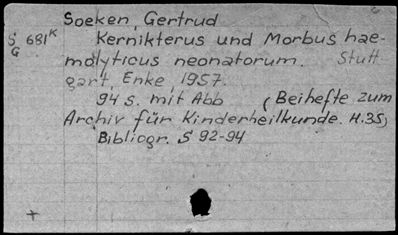 Soeken, Gertrud
S 681K Kernikterus und Morbus hae-
G molyticus neonatorum. Stutt
gart, Enke, 1957.
94 s. mit Abb (Beihefte zum
Archiv für Kinderheilkunde. H.35)
Bibliogr. S 92-94
+